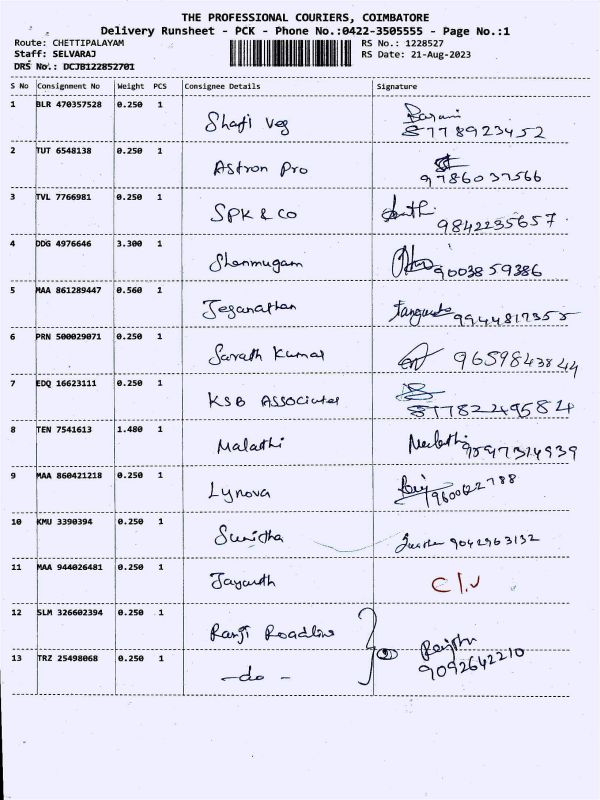 THE PROFESSIONAL COURIERS, COIMBATORE
Delivery Runsheet - PCK - Phone No.:0422-3505555 - Page No.:1
Route: CHETTIPALAYAM RS No.: 1228527
Staff: SELVARAJ RS Date: 21-Aug-2023
DRS No.: DCJB122852701
S No Consignment No Weight PCS Consignee Details Signature
1 BLR 470357528 0.250 1 Shafi Veg
8778923452
2 TUT 6548138 0.250 1 Astron Pro
9786037566
3 TVL 7766981 0.250 1 SPK & Co
9842235657
4 DDG 4976646 3.300 1 Shanmugam 9003859386
5 MAA 861289447 0.560 1 Jeganathan
6 PRN 500029071 0.250 1 Sarath Kumar 9659843844
7 EDQ 16623111 0.250 1 KSB Associates
8 TEN 7541613 1.480 1 Malathi
9 MAA 860421218 0.250 1 Lynova
10 KMU 3390394 0.250 1 Sunitha 9042963132
11 MAA 944026481 0.250 1 Jayanth
12 SLM 326602394 0.250 1 Ranji Roadline
13 TRZ 25498068 0.250 1 -do-
9092642210